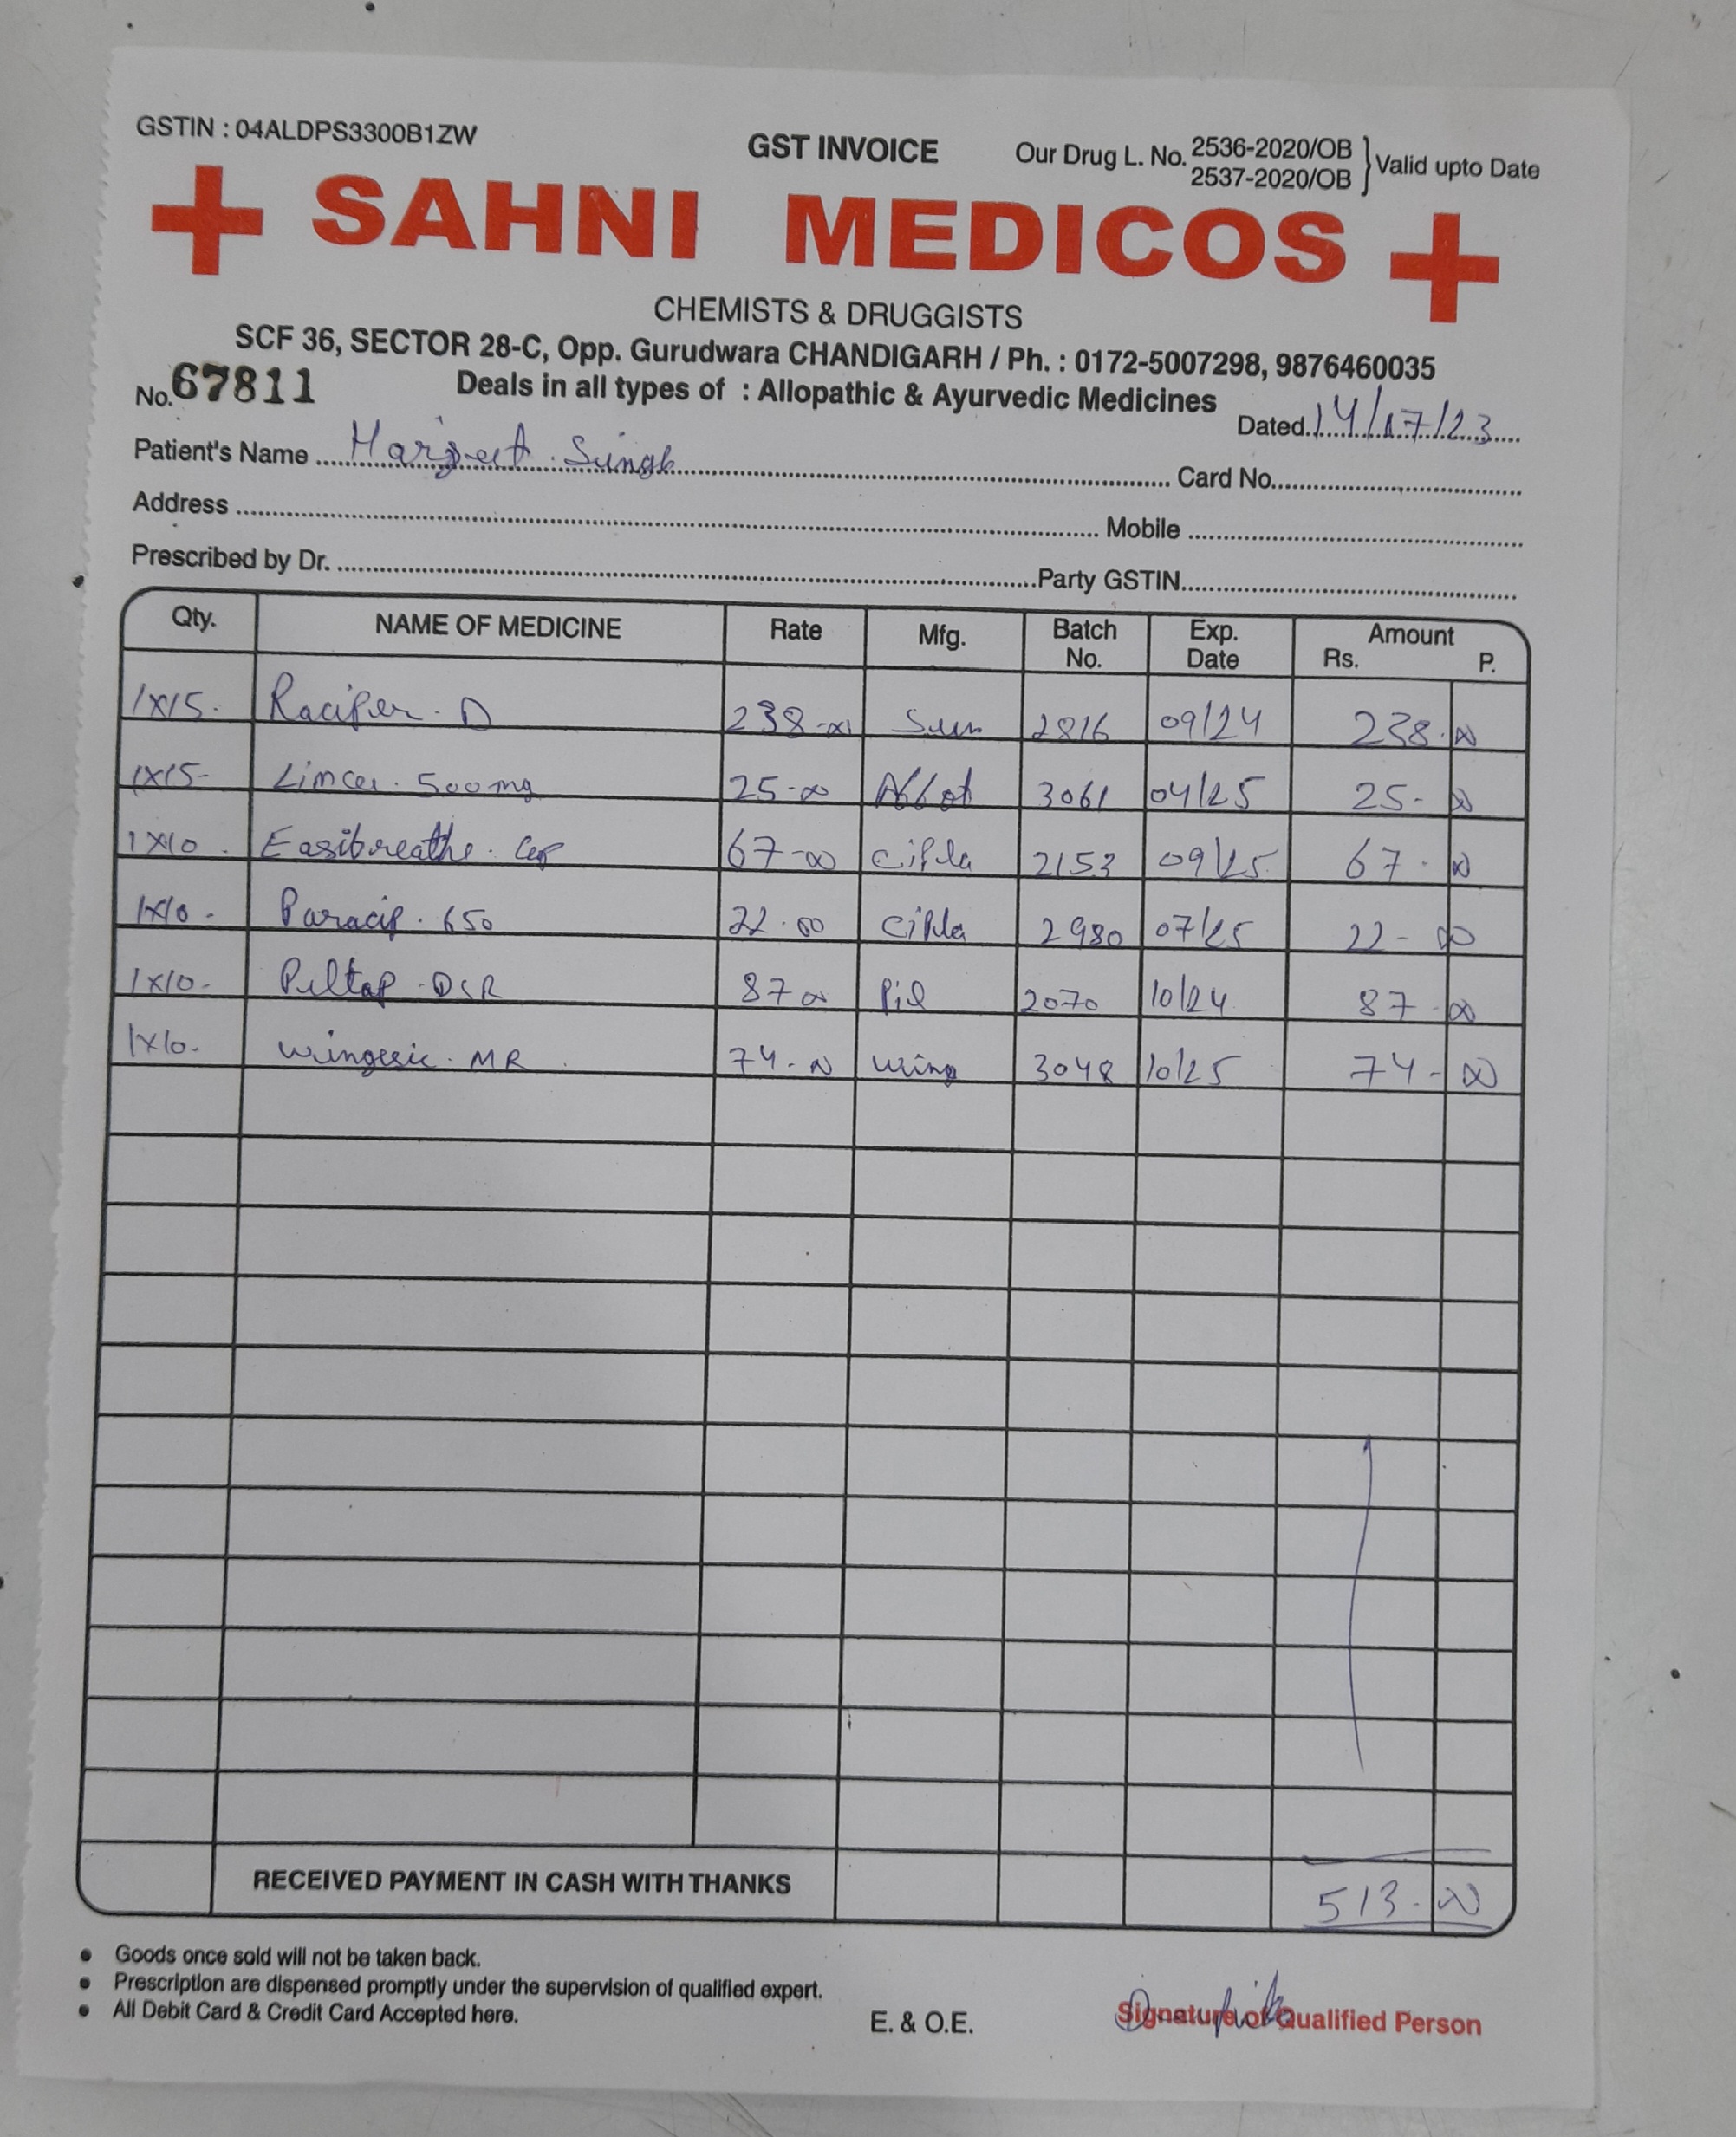 GSTIN : 04ALDPS3300B1ZW
GST INVOICE
Our Drug L. No. 2536-2020/OB
2537-2020/OB } Valid upto Date
SAHNI MEDICOS
CHEMISTS & DRUGGISTS
SCF 36, SECTOR 28-C, Opp. Gurudwara CHANDIGARH / Ph. : 0172-5007298, 9876460035
No. 67811
Deals in all types of : Allopathic & Ayurvedic Medicines
Dated 14/07/23
Patient's Name Harjeet Singh Card No.
Address Mobile
Prescribed by Dr. Party GSTIN
Qty. NAME OF MEDICINE Rate Mfg. Batch No. Exp. Date Amount Rs. P.
1x15. Raciper. D 238-00 Sun 2816 09/24 238.00
1x15- Limcee. 500mg 25-00 Abbot 3061 04/25 25-00
1x10. Easibreathe. Cap 67-00 Cipla 2153 09/25 67.00
1x10- Paracip. 650 22.00 Cipla 2980 07/25 22-00
1x10- Piltap-DSR 87 00 Pil 2070 10/24 87-00
1x10- Wingesic. MR 74-00 Wing 3048 10/25 74-00
RECEIVED PAYMENT IN CASH WITH THANKS 513-00
• Goods once sold will not be taken back.
• Prescription are dispensed promptly under the supervision of qualified expert.
• All Debit Card & Credit Card Accepted here.
E. & O.E.
Signature of Qualified Person